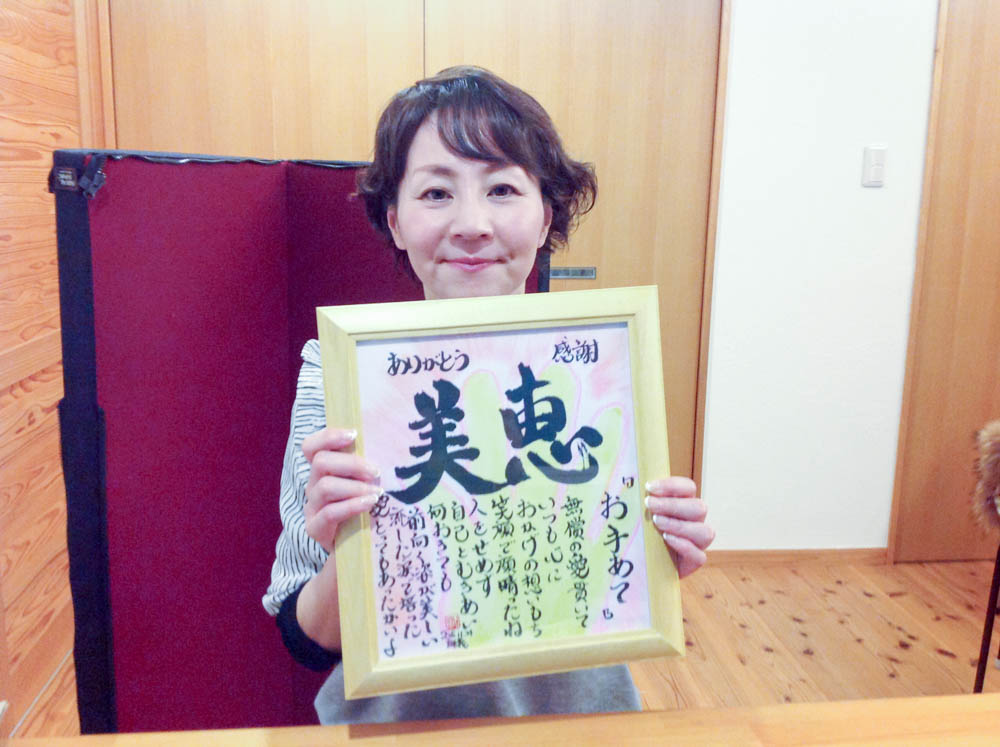 ありがとう 感謝
美恵
「お手あて」
無償の愛貫いて
いつも心に
おかげの想いもち
笑顔で頑晴ったね
人をせめず
自己とむきあい
何おきても
前向く姿が美しい
流した涙で培った
愛とってもあったかいよ